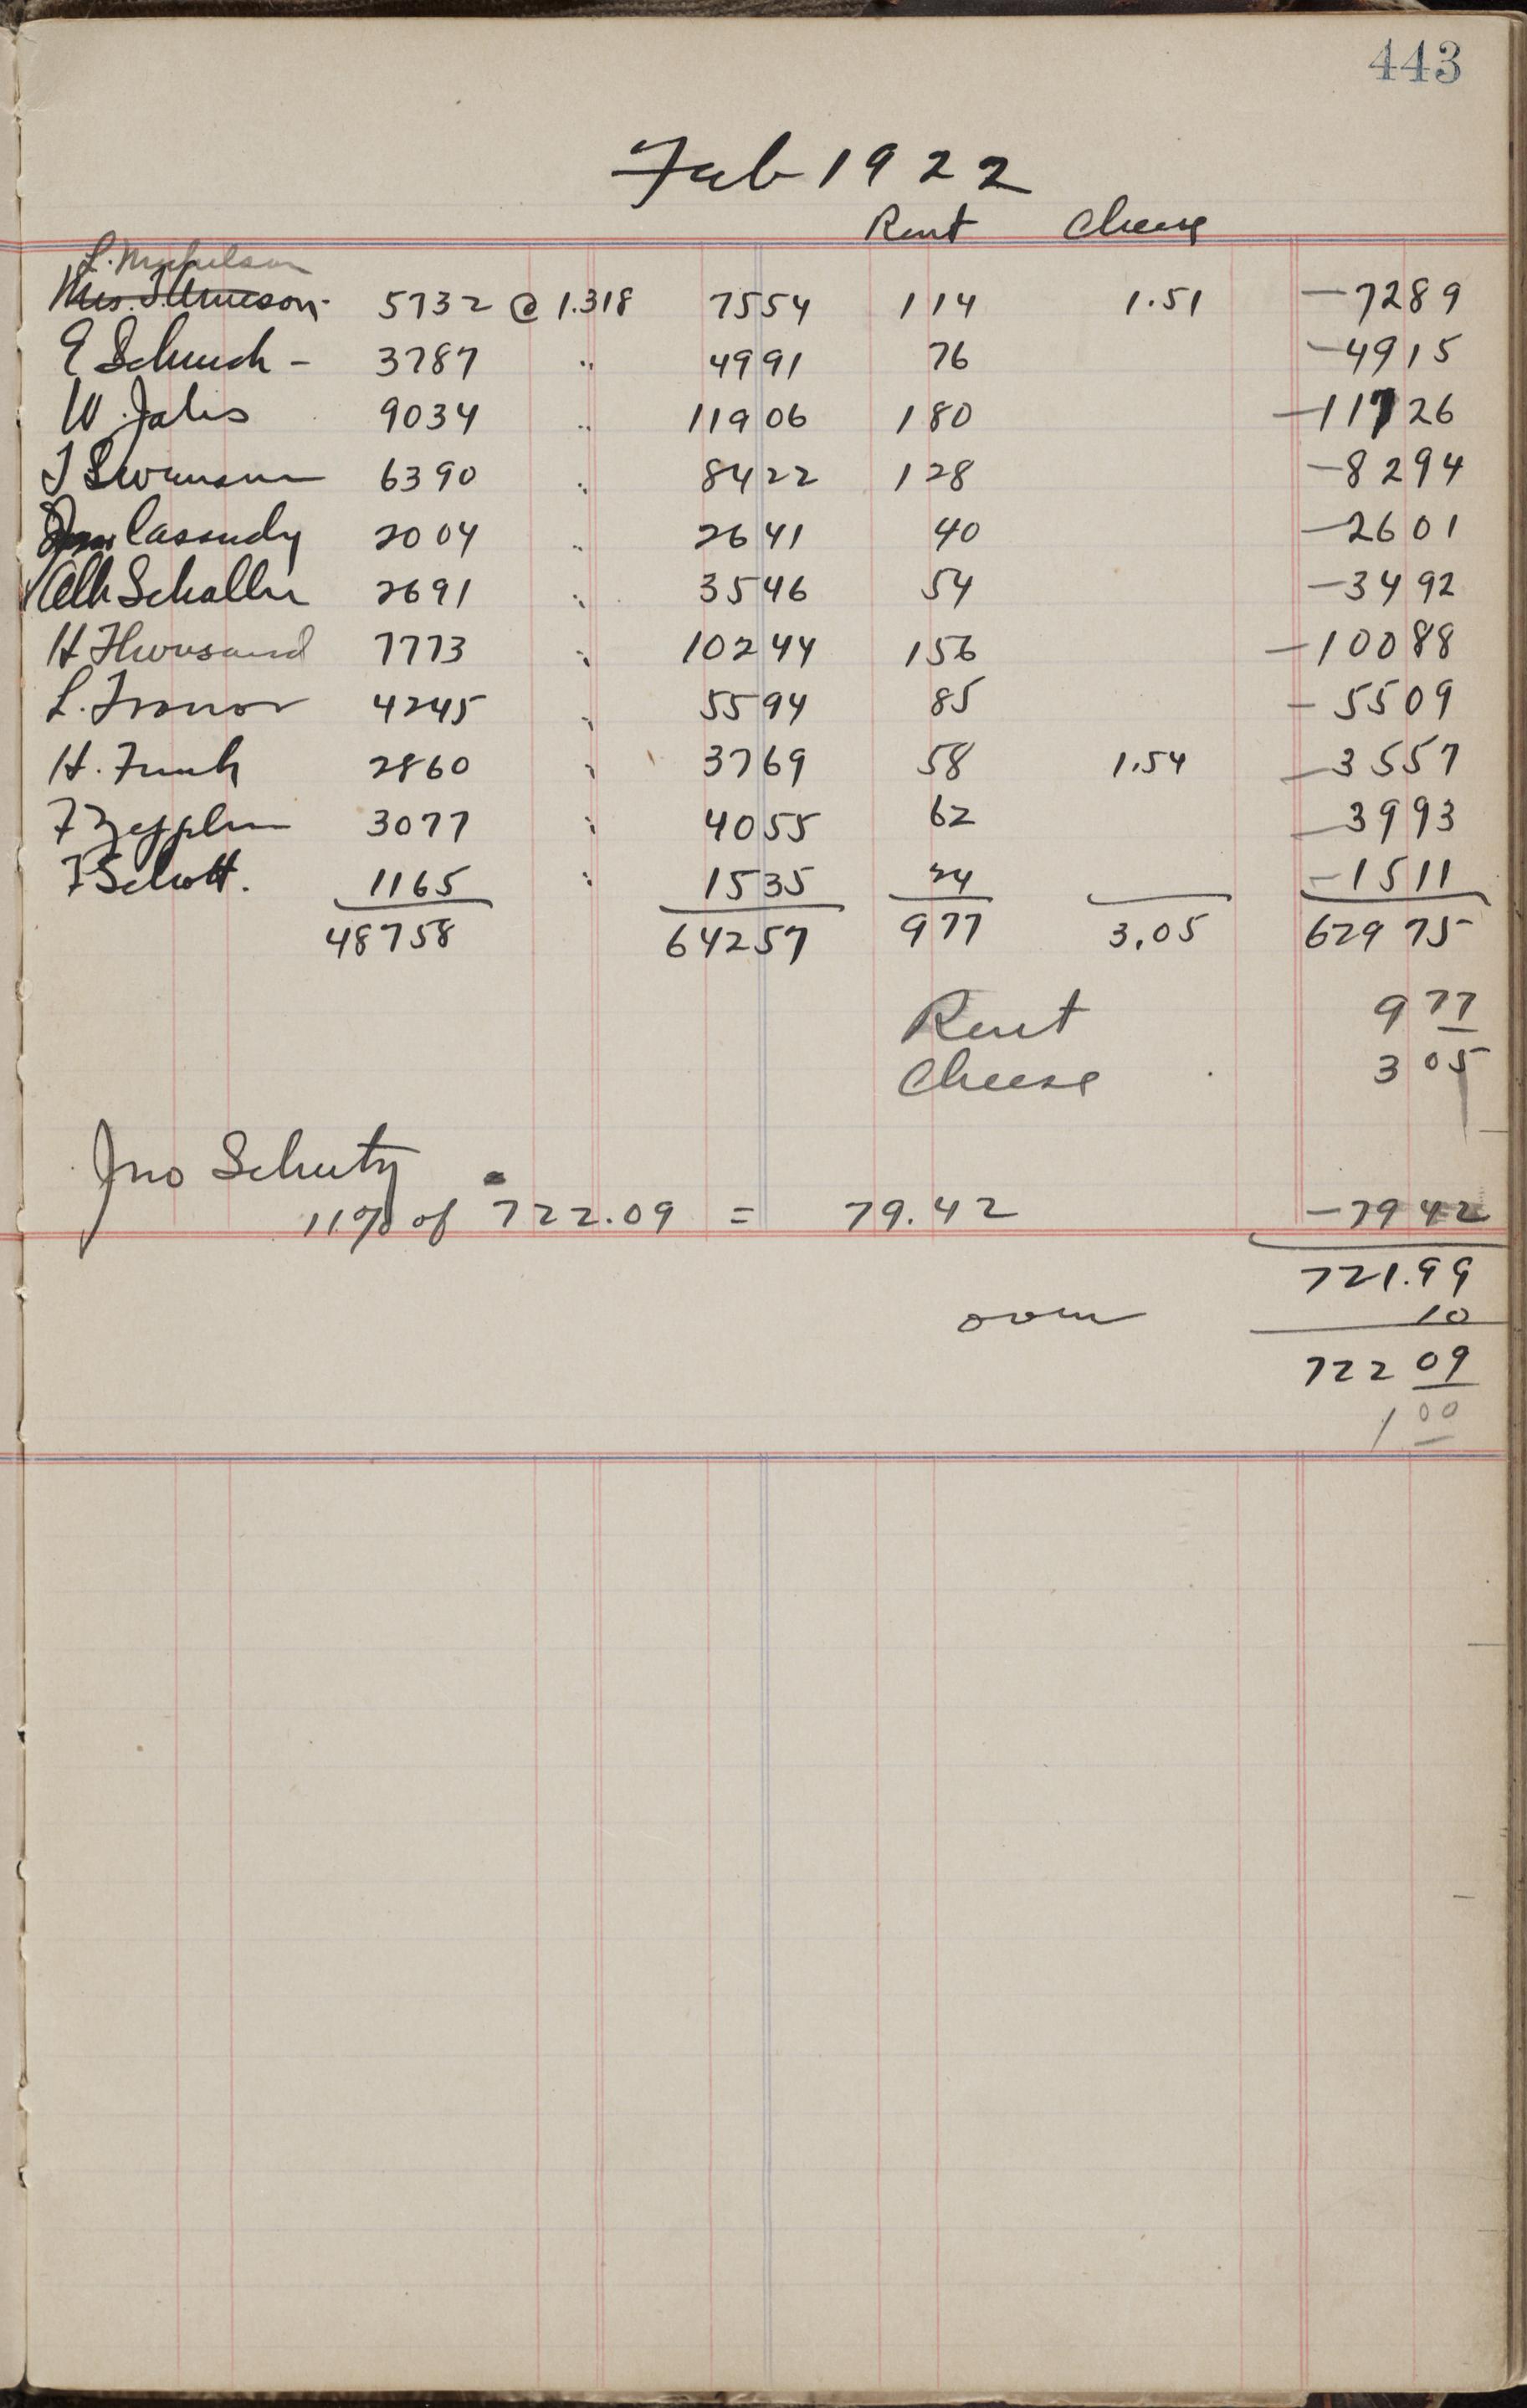 443
Feb 1922
Rent Cheese
L. Michelson
Mrs. T. Arneson - 5732 @ 1.318 7554 114 1.51 - 7289
E Schuch - 3787 " 4991 76 - 4915
W. Jahs 9034 " 11906 180 - 11726
T Swenson 6390 " 8422 128 - 8294
Cassudy 2004 " 2641 40 - 2601
Alb Schaller 2691 " 3546 54 - 3492
H 7773 " 10244 156 - 10088
L. 4245 " 5594 85 - 5509
H. Funk 2860 " 3769 58 1.54 - 3557
F Zepplin 3077 " 4055 62 - 3993
F Schott. 1165 " 1535 24 - 1511
48758 64257 977 3.05 62975
Rent 9 77
Cheese 3 05
Jno Schutz
11% of 722.09 = 79.42 - 79 42
721.99
over 10
722 09
1 00